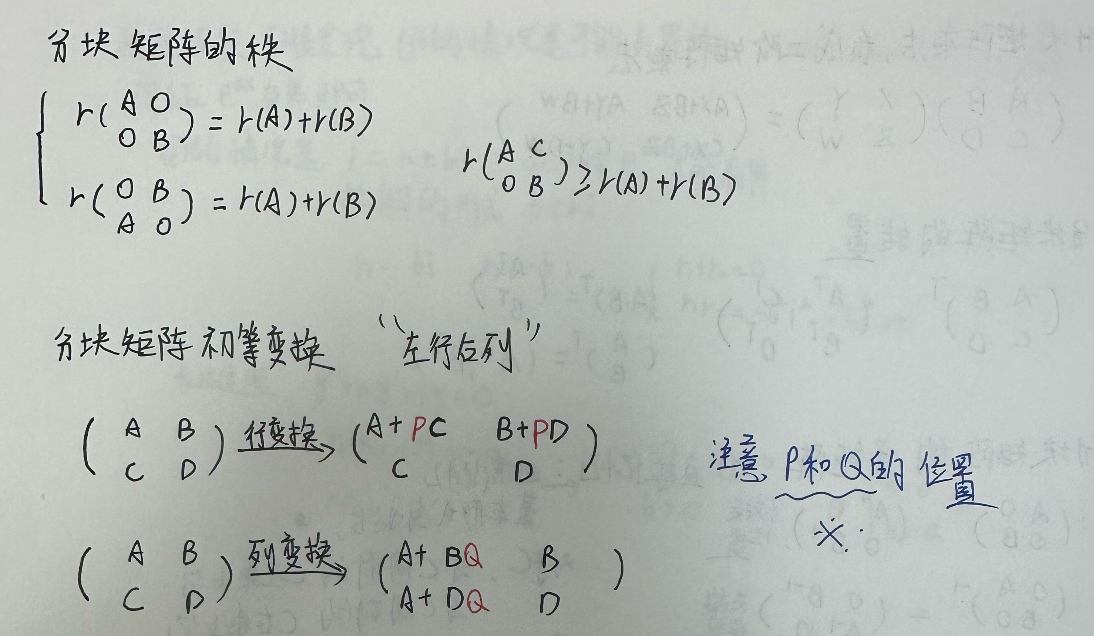 分块矩阵的秩
r(A O
O B) = r(A)+r(B)
r(O B
A O) = r(A)+r(B)
r(A C
O B) ≥ r(A)+r(B)
分块矩阵初等变换 “左行右列”
(A B
C D) 行变换→ (A+PC B+PD
C D)
(A B
C D) 列变换→ (A+BQ B
A+DQ D)
注意 P和Q的位置
※.